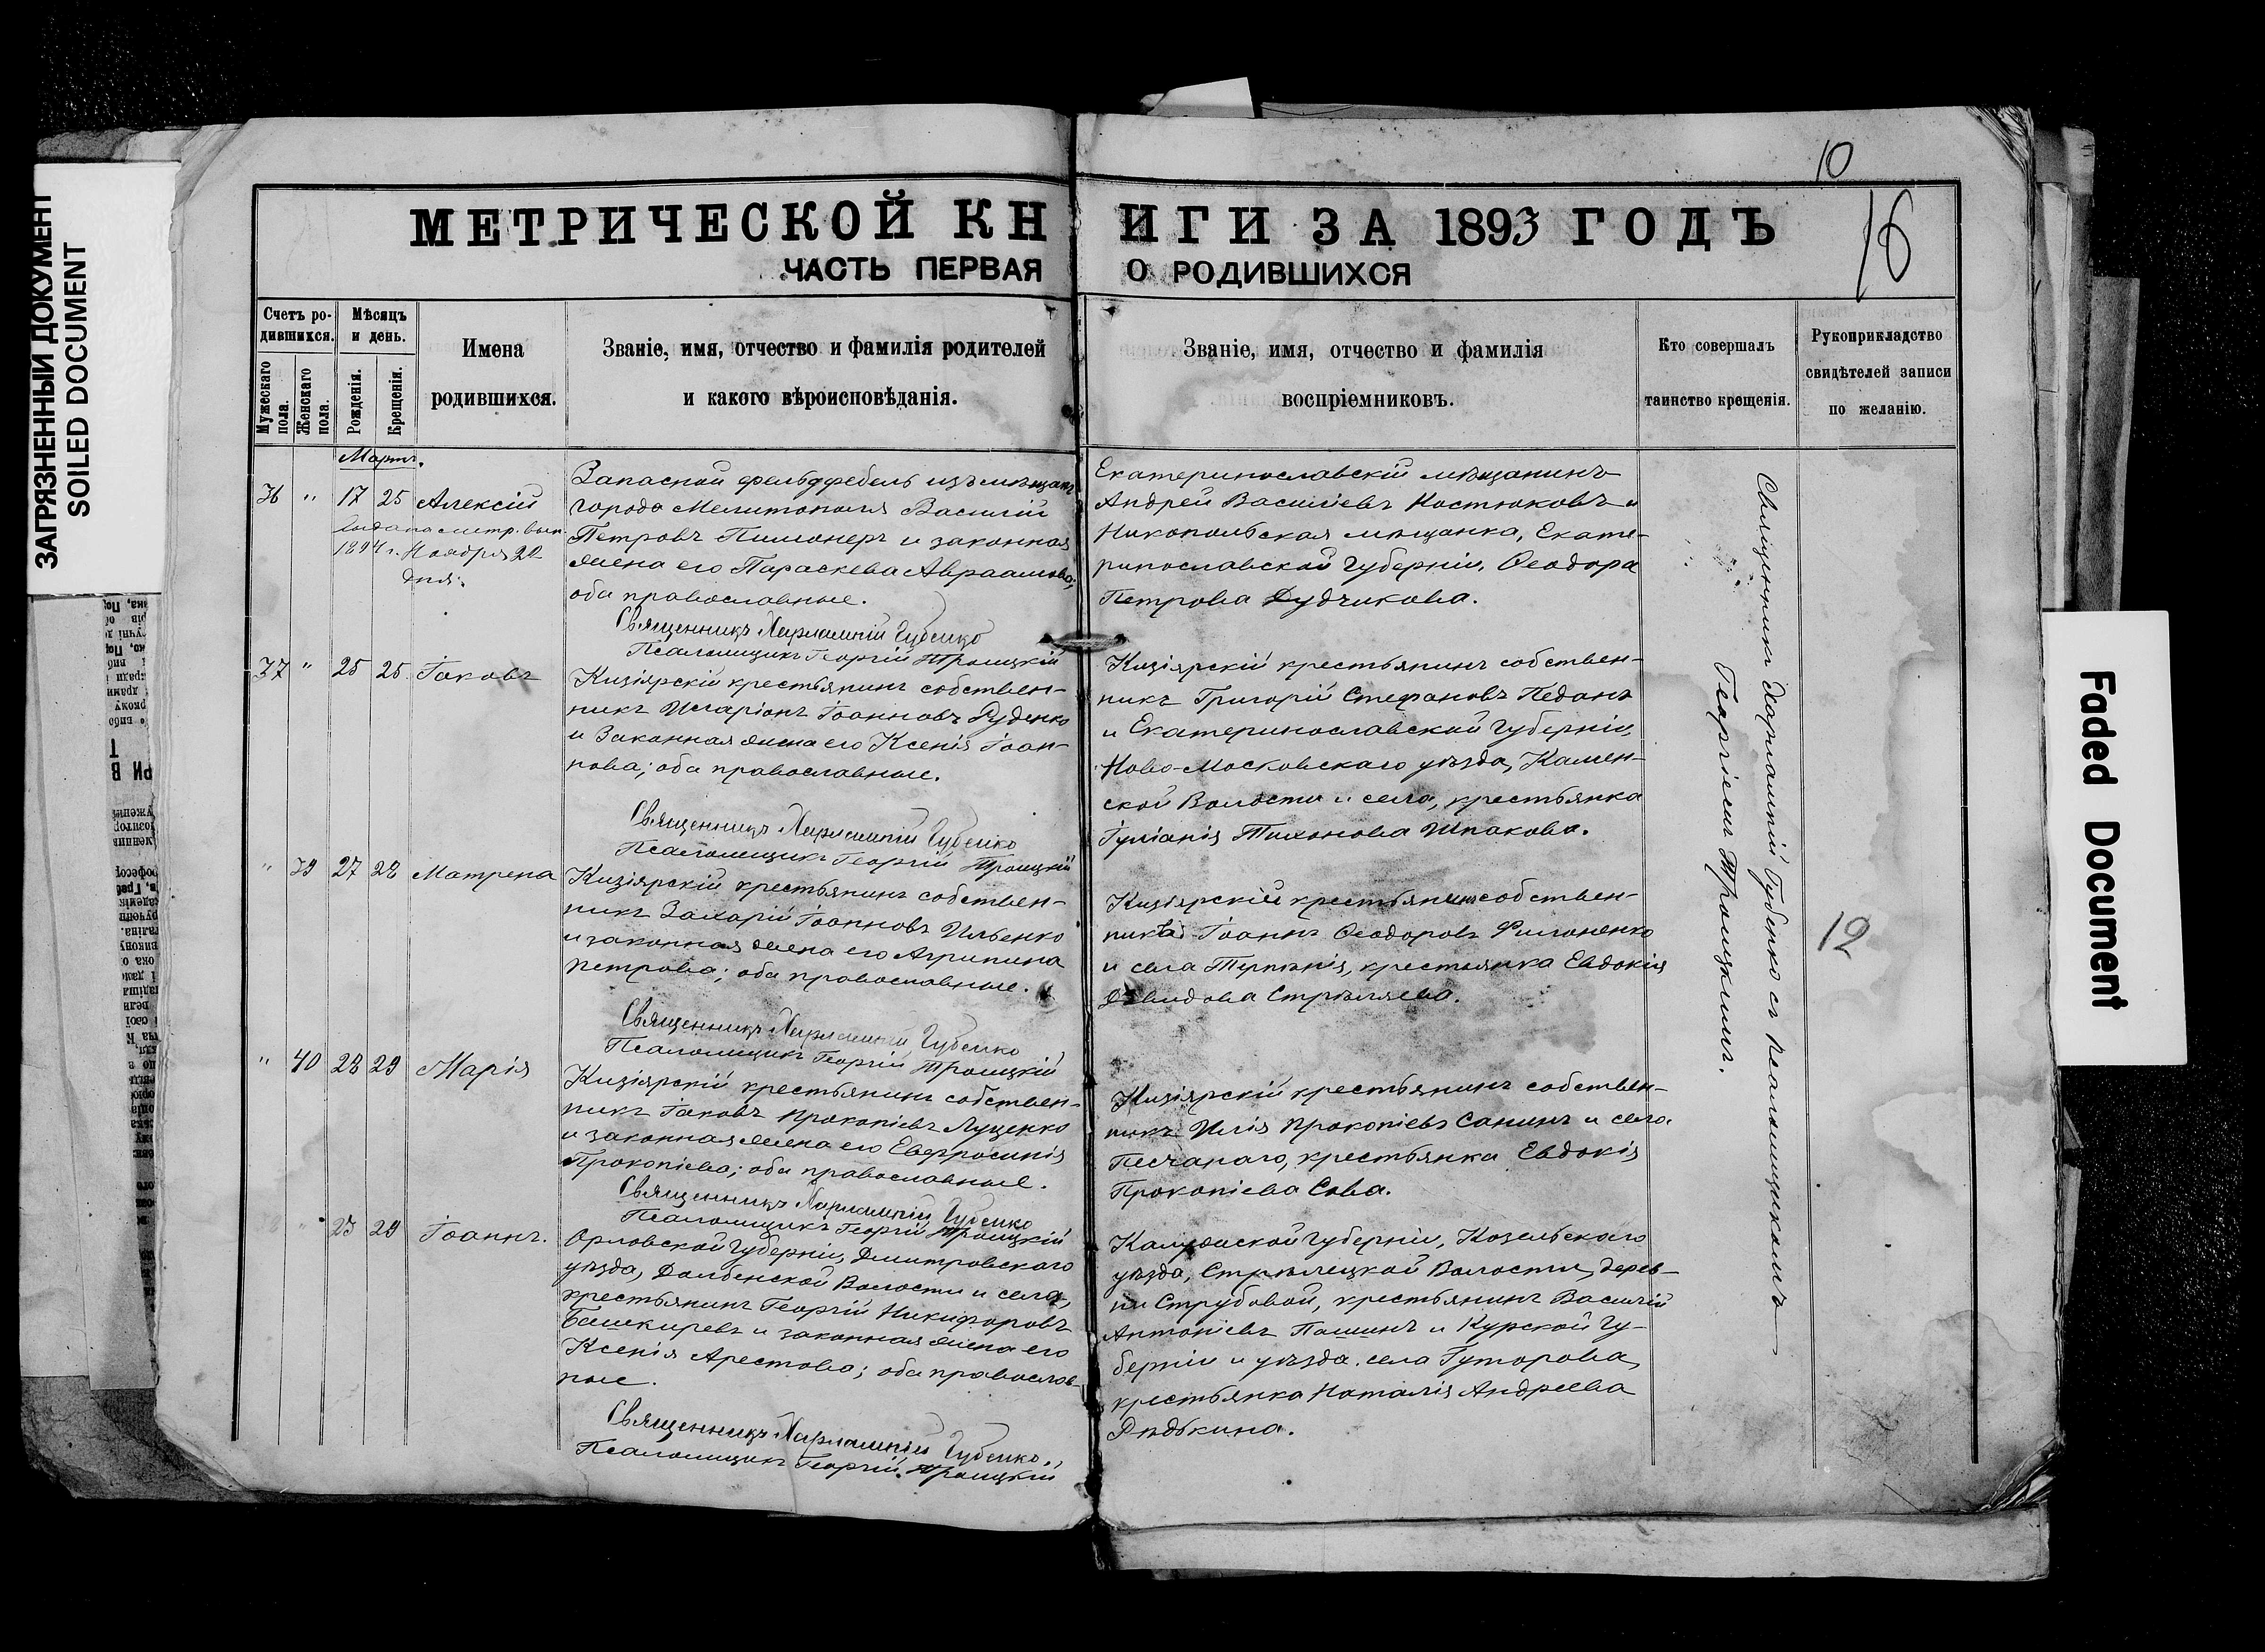 ЗАГРЯЗНЕННЫЙ ДОКУМЕНТ
SOILED DOCUMENT
10
16
МЕТРИЧЕСКОЙ КНИГИ ЗА 1893 ГОДЪ
ЧАСТЬ ПЕРВАЯ О РОДИВШИХСЯ
Счетъ ро-
дившихся.
Мужескаго пола.
Женскаго пола.
Мѣсяцъ
и день.
Рожденія.
Крещенія.
Имена
родившихся.
Званіе, имя, отчество и фамилія родителей
и какого вѣроисповѣданія.
Званіе, имя, отчество и фамилія
воспріемниковъ.
Кто совершалъ
таинство крещенія.
Рукоприкладство
свидѣтелей записи
по желанію.
Мартъ.
36 " 17 25 Алексій
Выдана метр. вып.
1894 г. Ноября 22
дня.
Запасной фельдфебель изъ мѣщанъ
города Мелитополя Василій
Петровъ Пимонеръ и законная
жена его Параскева Авраамова;
оба православные.
Священникъ Харлампій Губенко
Псаломщикъ Георгій Троицкій
Екатеринославскій мѣщанинъ
Андрей Василіевъ Костюковъ и
Никопольская мѣщанка, Екате-
ринославской Губерніи, Ѳеодора
Петрова Дудчикова.
37 " 25 25 Іаковъ
Кизіярскій крестьянинъ собствен-
никъ Иларіонъ Іоанновъ Руденко
и Законная жена его Ксенія Іоан-
нова; оба православные.
Священникъ Харлампій Губенко
Псаломщикъ Георгій Троицкій
Кизіярскій крестьянинъ собствен-
никъ Григорій Стефановъ Педанъ
и Екатеринославской Губерніи,
Ново-Московскаго уѣзда, Камен-
ской Волости и села, крестьянка
Іуліанія Тихонова Шпакова.
" 39 27 28 Матрена
Кизіярскій крестьянинъ собствен-
никъ Захарій Іоанновъ Ильенко
и законная жена его Агрипина
Петрова; оба православные.
Священникъ Харлампій Губенко
Псаломщикъ Георгій Троицкій
Кизіярскій крестьянинъ собствен-
никъ Іоаннъ Ѳеодоровъ Филоненко
и села Терпѣнія, крестьянка Евдокія
Давидова Стрѣляева.
" 40 28 29 Марія
Кизіярскій крестьянинъ собствен-
никъ Іаковъ Прокопіевъ Луценко
и законная жена его Евфросинія
Прокопіева; оба православные.
Священникъ Харлампій Губенко
Псаломщикъ Георгій Троицкій
Кизіярскій крестьянинъ собствен-
никъ Илія Прокопіевъ Санинъ и села
Песчанаго, крестьянка Евдокія
Прокопіева Сова.
" 23 29 Іоаннъ.
Орловской Губерніи, Дмитровскаго
уѣзда, Долбенской Волости и села,
крестьянинъ Георгій Никифоровъ
Башкиревъ и законная жена его
Ксенія Арестова; оба православ-
ные.
Священникъ Харлампій Губенко.
Псаломщикъ Георгій Троицкій
Калужской Губерніи, Козельскаго
уѣзда, Стрѣлецкой Волости, дерев-
ни Струбовой, крестьянинъ Василій
Антоніевъ Пашинъ и Курской Гу-
берніи и уѣзда села Гуторова,
крестьянка Наталія Андреева
Рѣдькина.
Священникъ Харлампій Губенко съ псаломщикомъ
Георгіемъ Троицкимъ.
12
Faded Document